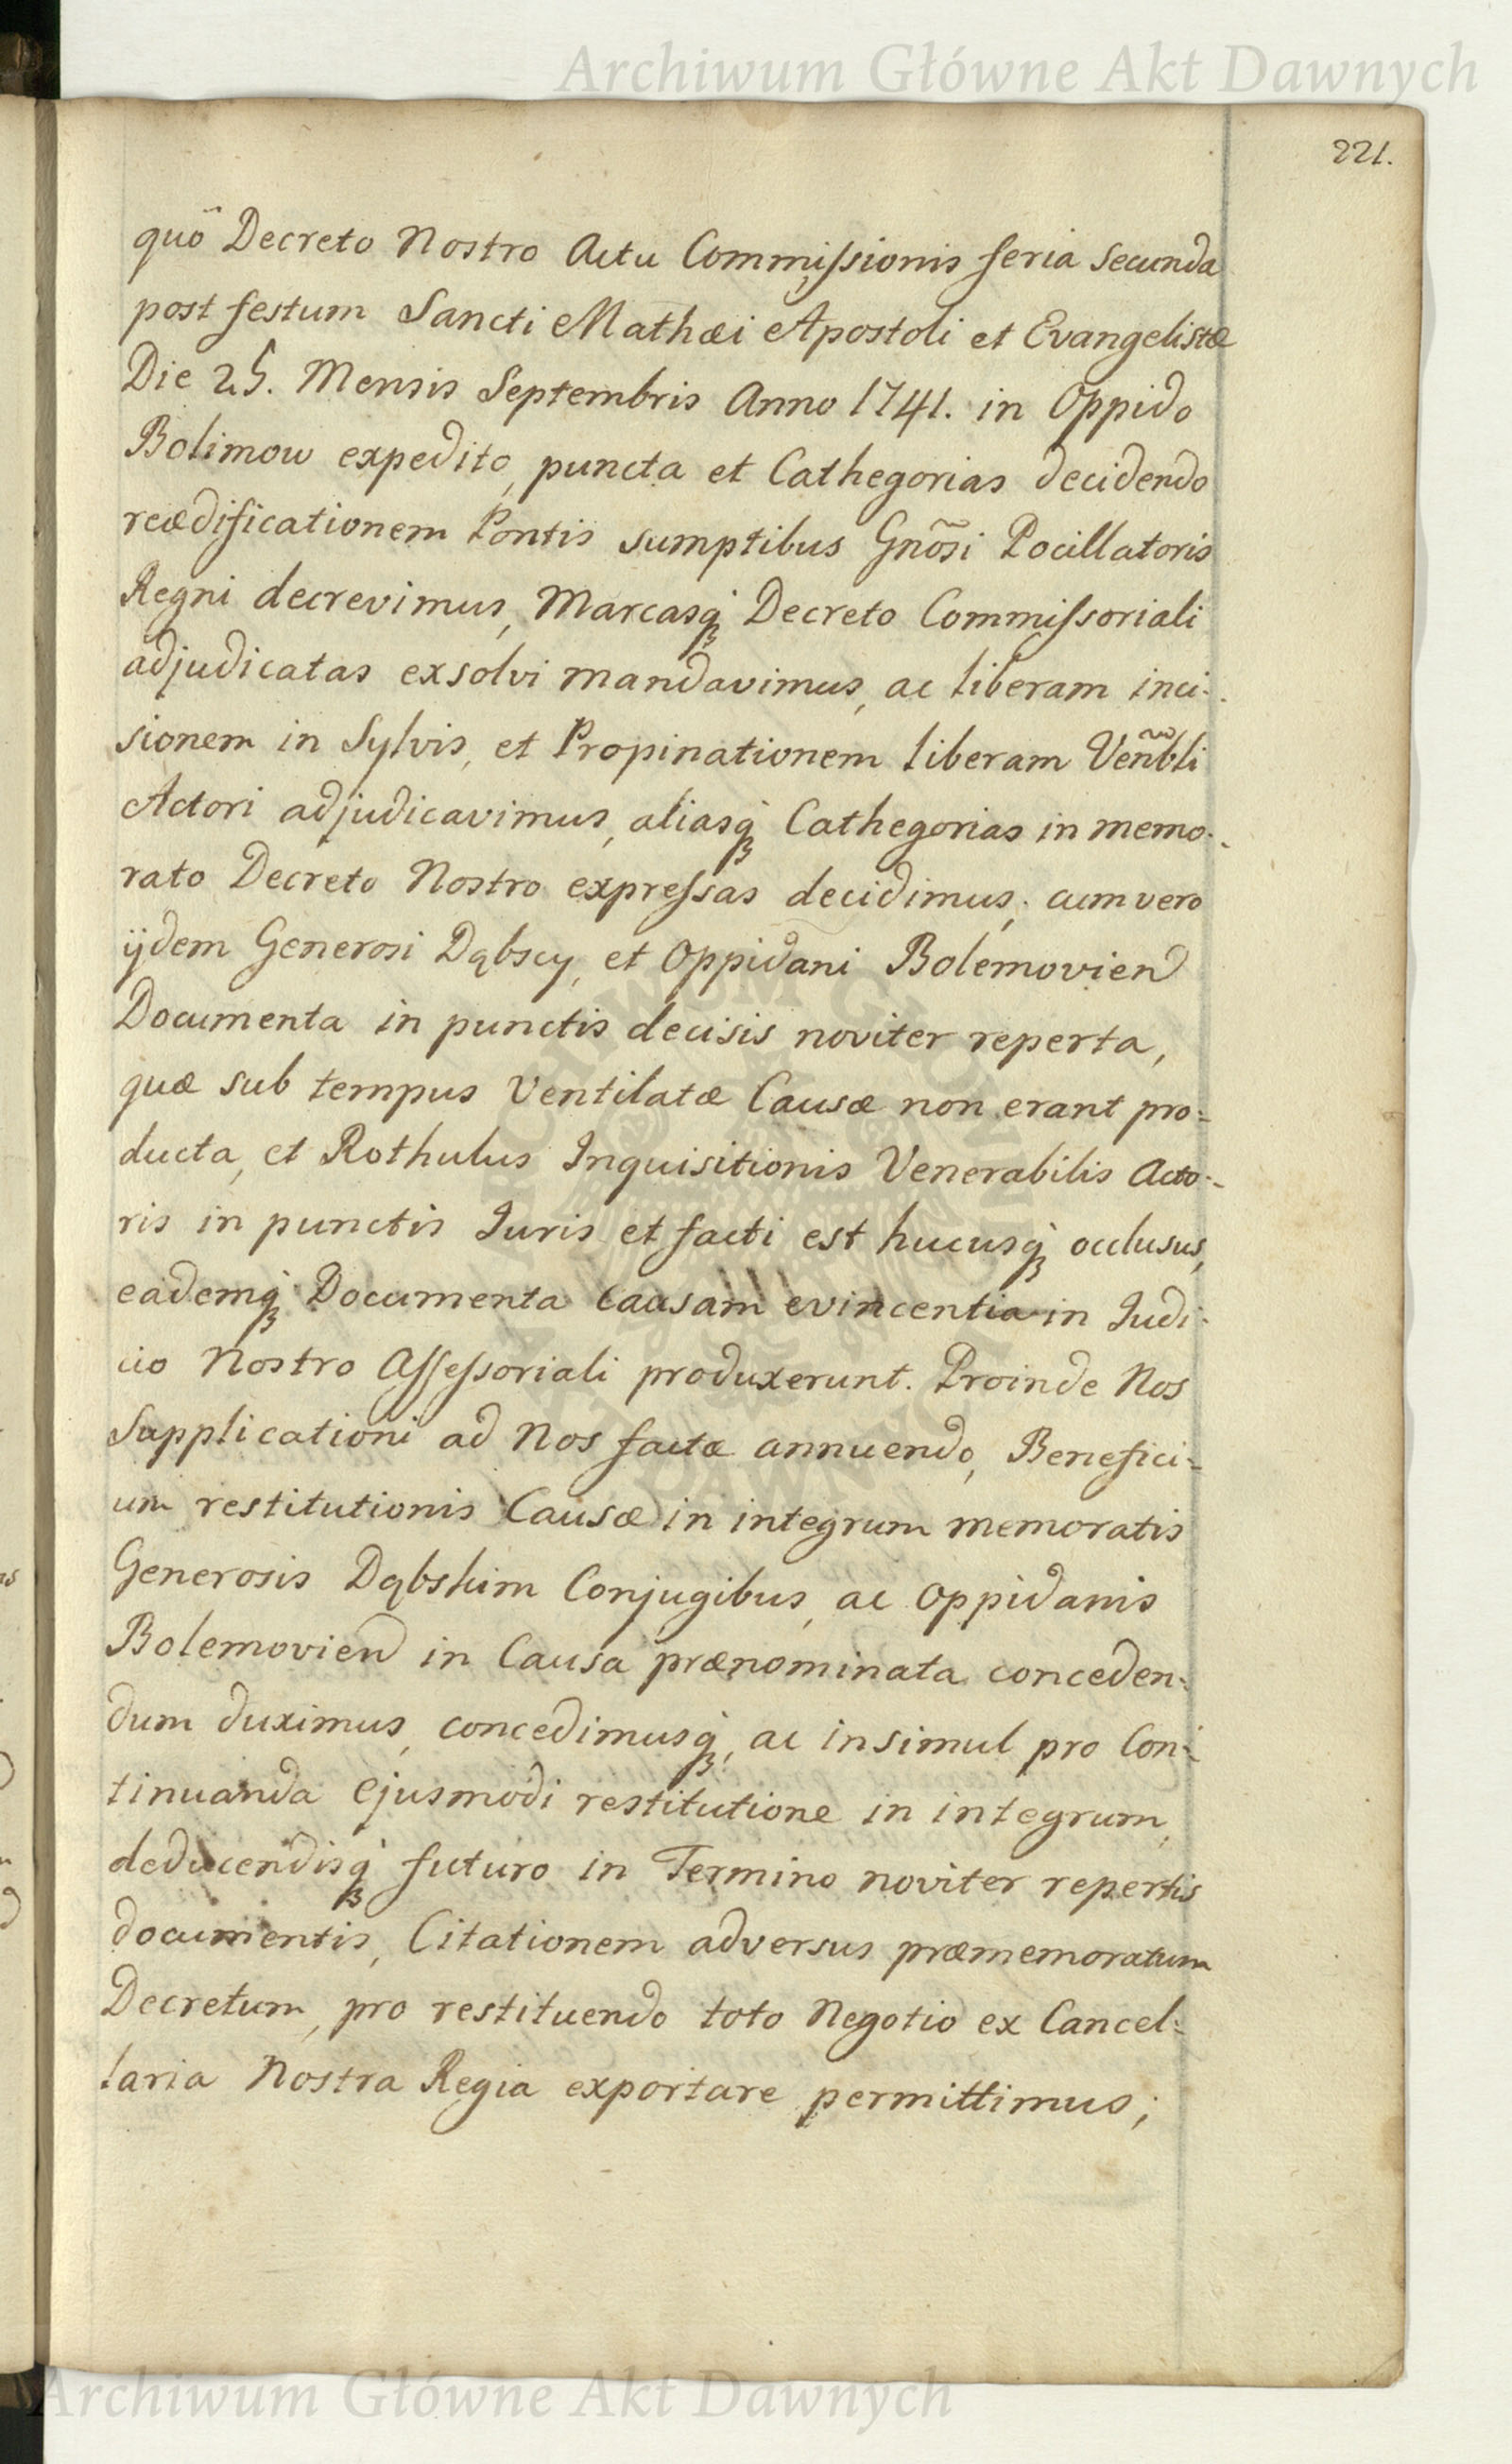 Archiwum Główne Akt Dawnych
221.
quō Decreto Nostro Actu Commissionis feria secunda
post festum Sancti Mathæi Apostoli et Evangelistæ
Die 25. Mensis Septembris Anno 1741. in Oppido
Bolimow expedito, puncta et Cathegorias decidendo
reædificationem Pontis sumptibus Gnõsi Pocillatoris
Regni decrevimus, Marcasqꝫ Decreto Commissoriali
adjudicatas exsolvi mandavimus, ac liberam inci-
sionem in Sylvis, et Propinationem liberam Veñbli
Actori adjudicavimus, aliasqꝫ Cathegorias in memo-
rato Decreto Nostro expressas decidimus; cum vero
ijdem Generosi Dąbscy, et Oppidani Bolemovien
Documenta in punctis decisis noviter reperta,
quæ sub tempus Ventilatæ Causæ non erant pro=
ducta, et Rothulus Inquisitionis Venerabilis Acto-
ris in punctis Juris et facti est hucusqꝫ occlusus,
eademqꝫ Documenta causam evincentia in Judi-
cio Nostro Assessoriali produxerunt. Proinde Nos
Supplicationi ad Nos factæ annuendo, Benefici=
um restitutionis Causæ in integrum memoratis
Generosis Dąbskim Conjugibus, ac Oppidanis
Bolemovien in Causa prænominata conceden=
dum duximus, concedimusqꝫ, ac insimul pro Con=
tinuanda ejusmodi restitutione in integrum,
deducendisqꝫ futuro in Termino noviter repertis
documentis, Citationem adversus præmemoratum
Decretum, pro restituendo toto Negotio ex Cancel=
laria Nostra Regia exportare permittimus;
Archiwum Główne Akt Dawnych